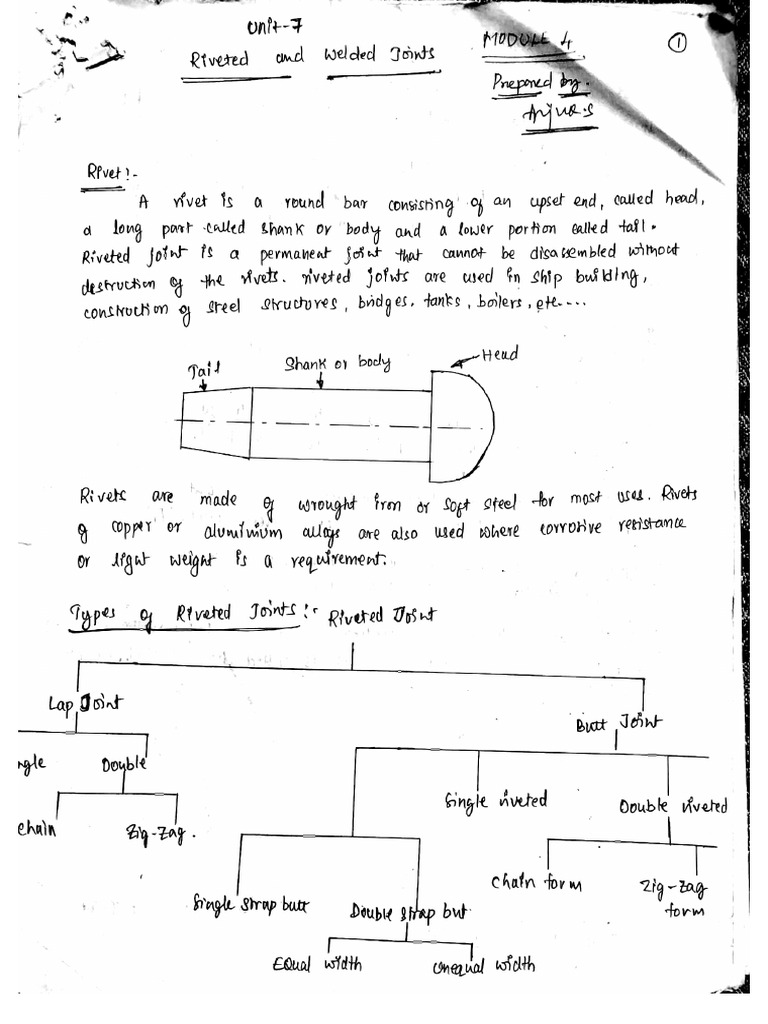 Unit-7
MODULE 4
①
Riveted and Welded Joints
Prepared by.
Rivet:-
A rivet is a round bar consisting of an upset end, called head,
a long part called shank or body and a lower portion called tail.
Riveted joint is a permanent joint that cannot be disassembled without
destruction of the rivets. riveted joints are used in ship building,
construction of steel structures, bridges, tanks, boilers, etc....
Tail
Shank or body
Head
Rivets are made of wrought iron or soft steel for most uses. Rivets
of copper or aluminium alloys are also used where corrotive resistance
or light weight is a requirement.
Types of Riveted Joints:- Riveted Joint
Lap Joint
Butt Joint
ngle
Double
Single riveted
Double riveted
chain
Zig-Zag.
Chain form
Zig-Zag
form
Single strap butt
Double strap but
Equal width
Unequal width